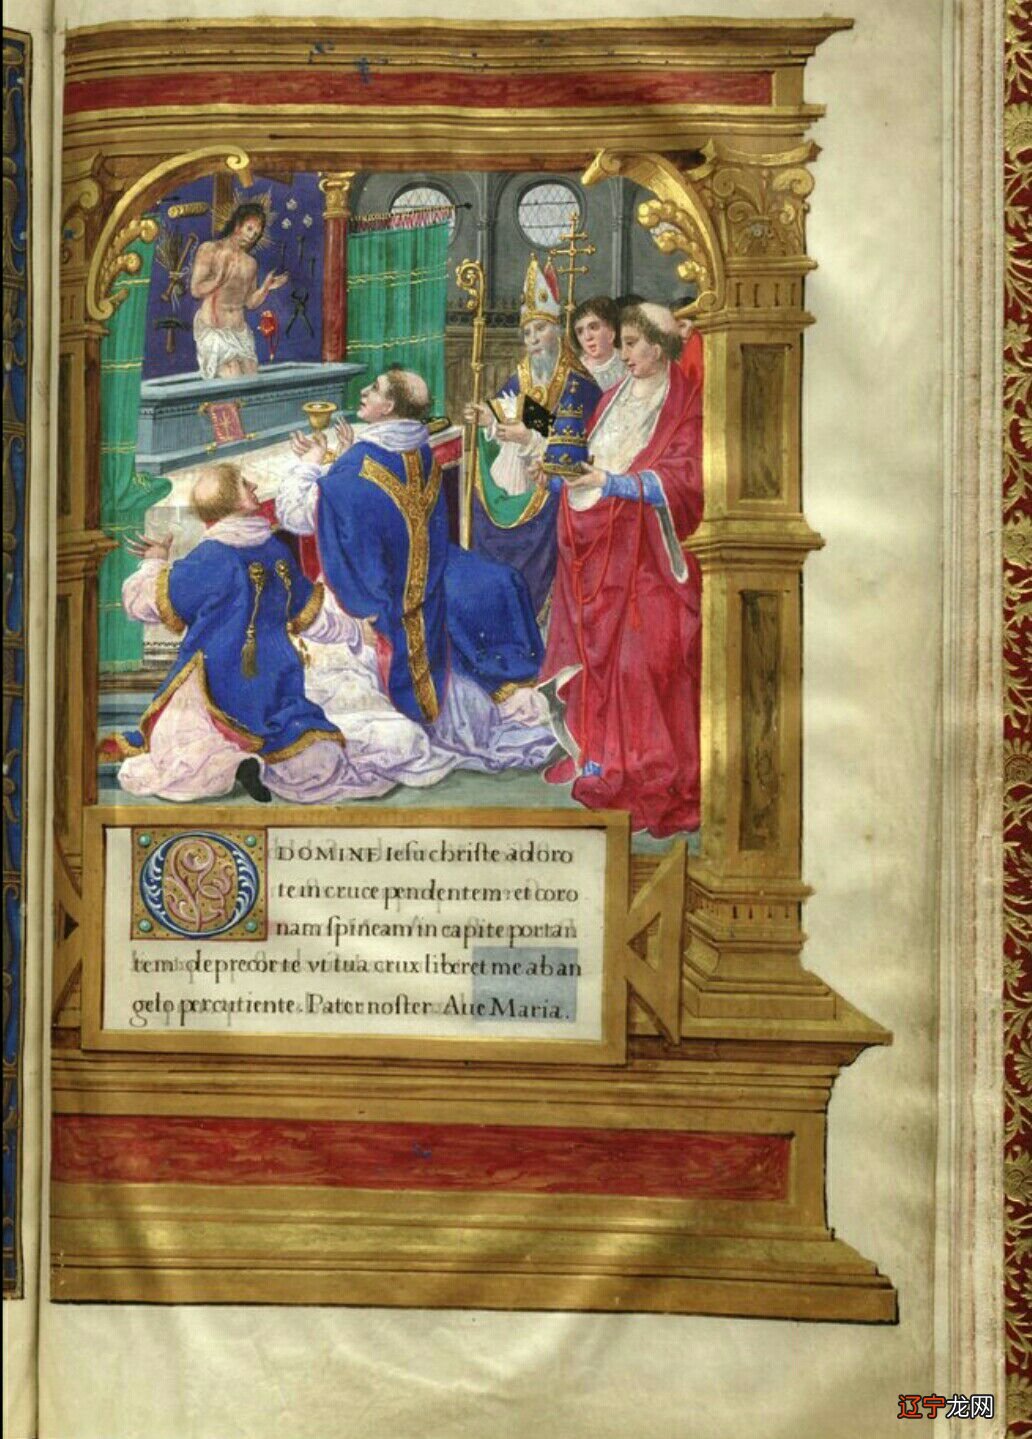 O DOMINE Iesu christe adoro
te in cruce pendentem et coro
nam spineam in capite portan
tem deprecor te vt tua crux liberet me ab an
gelo percutiente. Pater noster. Aue Maria.
辽宁龙网